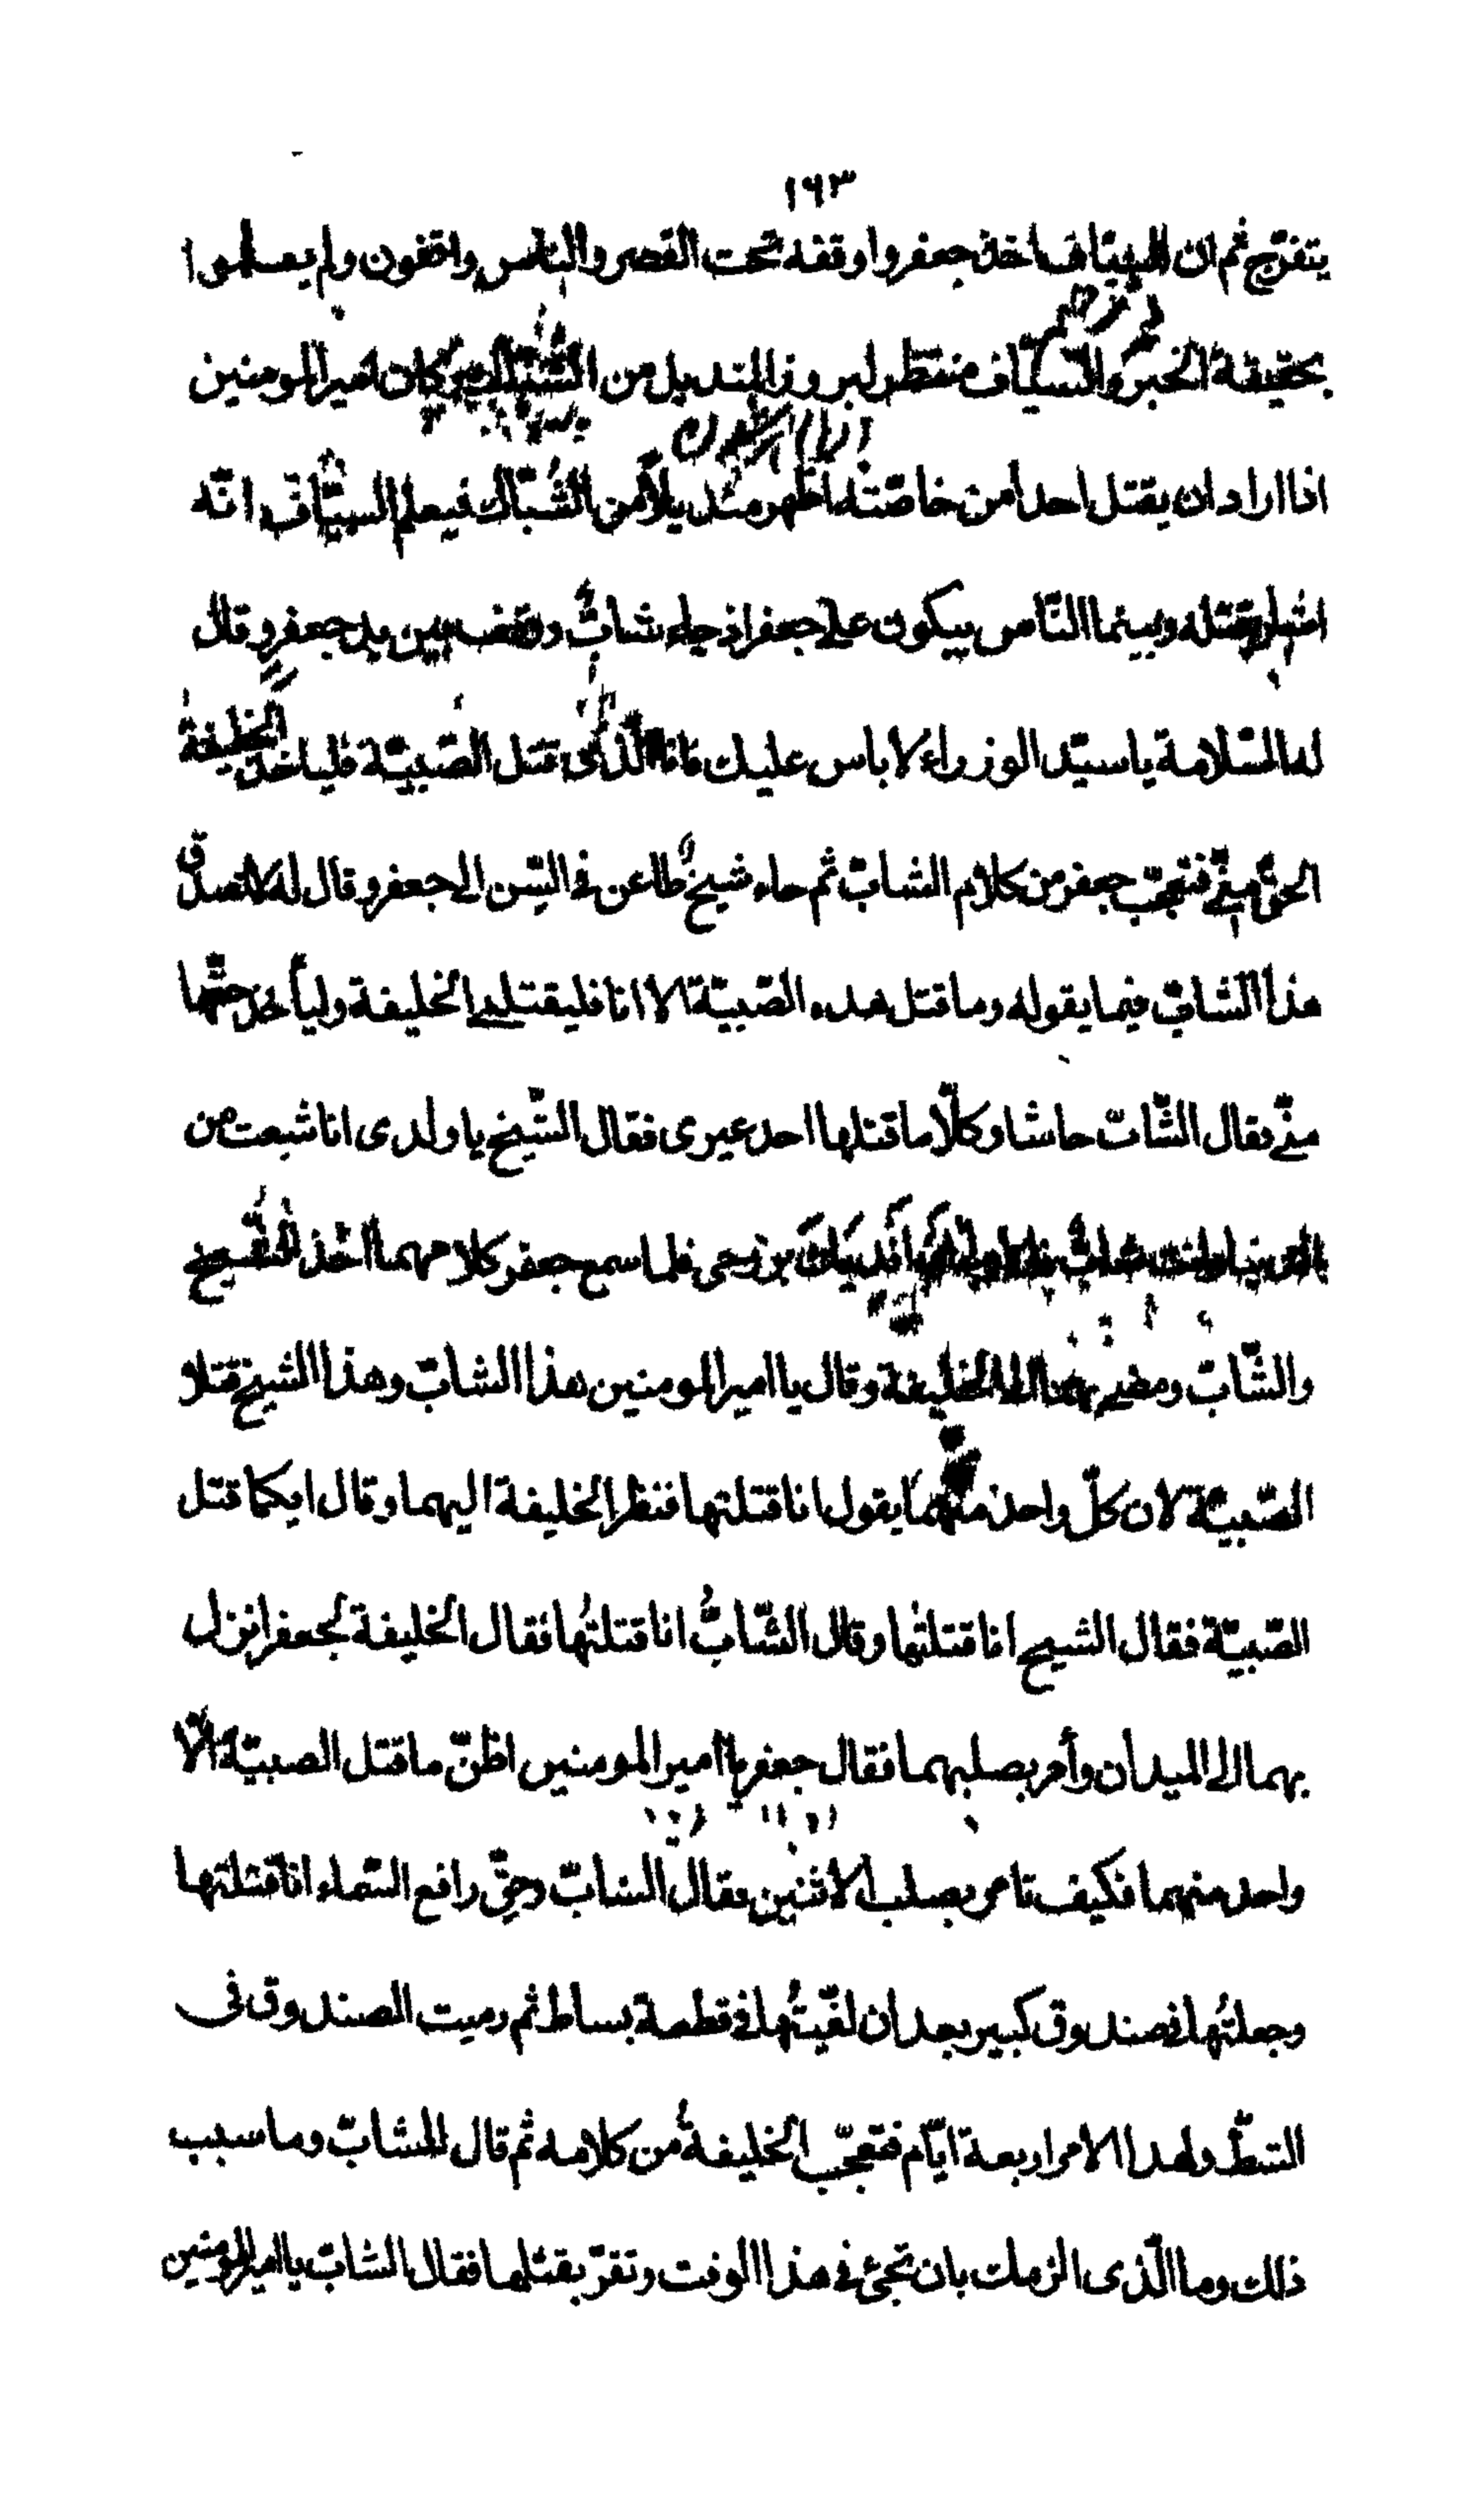 ١٦٣
يتفرّج ثم ان السيّاف اخذ جعفر واوقفه تحت القصر والناس واقفون ولم يعلموا
بحقيقة الخبر والسيّاف منتظر لبروز المنديل من الشبّاك وكان امير المومنين
اذا اراد ان يقتل احدا من خاصّته اظهر منديلا من الشبّاك فيعلم السيّاف انّه
اشار بقتله وبينما النّاس يبكون على جعفر اذ جاء شابّ وقف بين يد جعفر وقال
له السّلامة يا سيّد الوزراء لا باس عليك فانا الّذى قتل الصّبيّة فلياخذ الخليفة
الحق منّى فتعجّب جعفر من كلام الشابّ ثم جاء شيخٌ طاعن فى السّن الى جعفر وقال له لا تصدّق
هذا الشابّ فيما يقوله وما قتل هذه الصّبيّة الا انا فليقتله الخليفة ولياخذ حقّها
منّى فقال الشّابّ حاشا وكلّا ما قتلها احد غيرى فقال الشّيخ يا ولدى انا شبعت من
الدنيا وانت شابّ فلما سمع جعفر كلامهما اخذ الشّيخ
والشّابّ ومضى بهما الى الخليفة وقال يا امير المومنين هذا الشابّ وهذا الشيخ قتلا
الصّبيّة لان كلّ واحد منهما يقول انا قتلتها فنظر الخليفة اليهما وقال ايكما قتل
الصّبيّة فقال الشيخ انا قتلتها وقال الشّابّ انا قتلتُها فقال الخليفة لجعفر انزل
بهما الى الميدان وأمر بصلبهما فقال جعفر يا امير المومنين اظنّ ما قتل الصبيّة الّا
واحد منهما فكيف تامر بصلب الاثنين فقال الشابّ وحقّ رافع السّماء انا قتلتها
وجعلتُها فى صندوق كبير بعد ان لفّيتُها فى قطعة بساط ثم رميت الصندوق فى
الشطّ ولهذا الامر اربعة ايّام فتعجّب الخليفةُ من كلامه ثم قال للشابّ وما سبب
ذلك وما الّذى الزمك بان تجئ فى هذا الوقت وتقرّ بقتلها فقال الشابّ يا امير المومنين